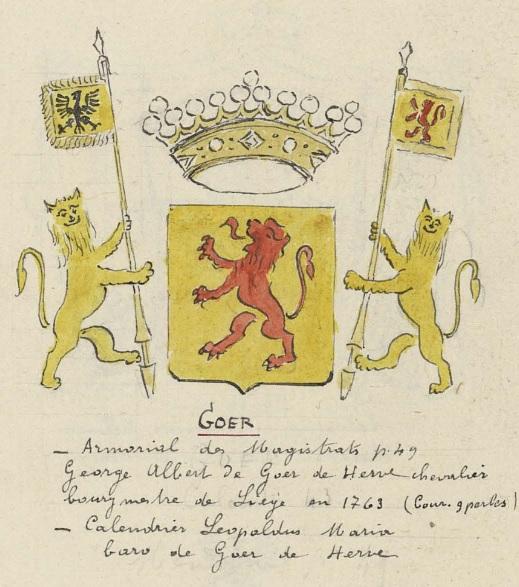 GOER
— Armorial des Magistrats p. 49
George Albert de Goer de Herve chevalier
bourgmestre de Liège en 1763 (Cour. 9 perles)
— Calendrier Leopoldus Maria
baro de Goer de Herve